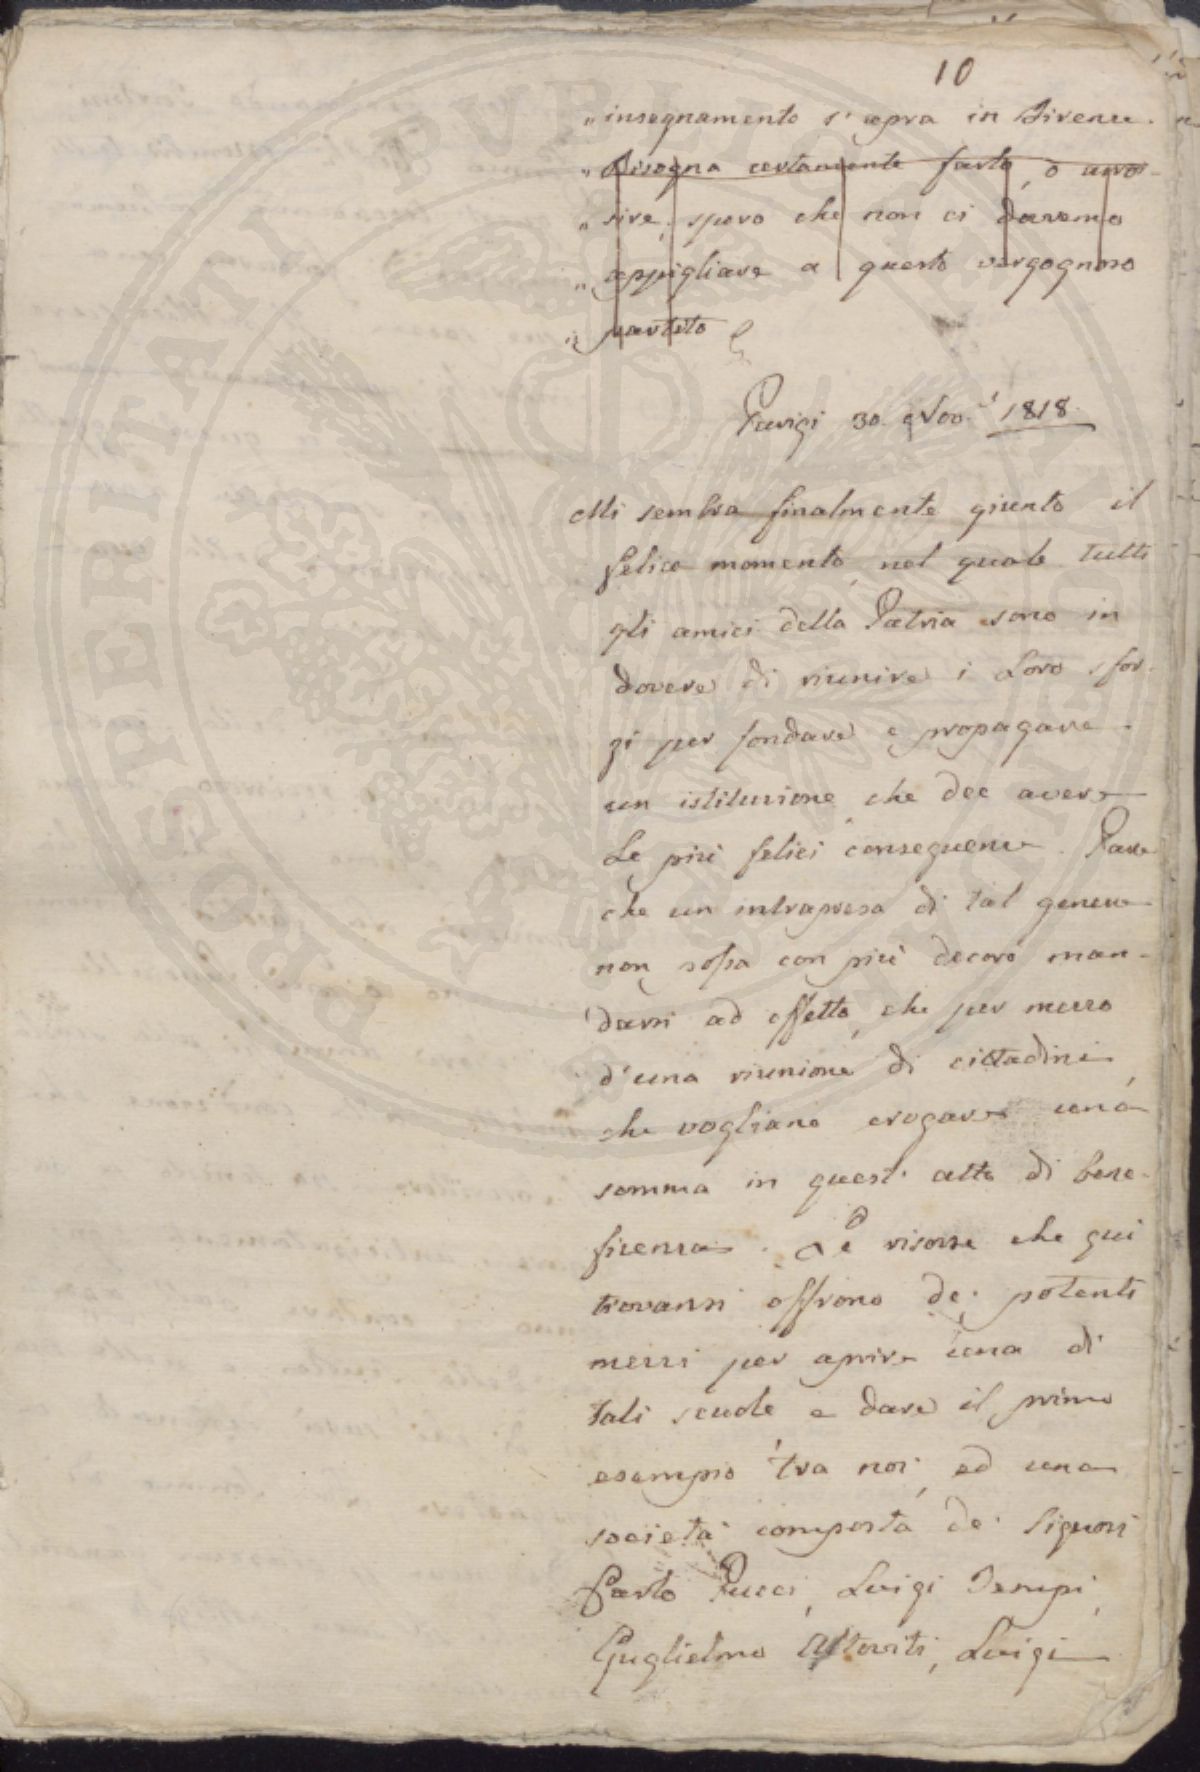 10
„ insegnamento s'apra in Firenze.
„ Bisogna certamente farlo, o arros-
„ sire, spero che non ci daremo
„ appigliare a questo vergognoso
„ partito
Parigi 30. Nov. 1818.
Mi sembra finalmente giunto il
felice momento, nel quale tutti
gli amici della Patria sono in
dovere di riunire i loro sfor-
zi per fondare e propagare
un istituzione che dee avere
le più felici conseguenze. Pare
che un intrapresa di tal genere
non possa con più decoro man-
darsi ad effetto, che per mezzo
d'una riunione di cittadini
che vogliano erogare una
somma in quest'atto di bene-
ficenza. Le risorse che qui
trovansi offrono de' potenti
mezzi per aprire una di
tali scuole e dare il primo
esempio tra noi, ed una
società composta de' Signori
Carlo Pucci, Luigi Tempi,
Guglielmo Altoviti, Luigi
PROSPERITATI PUBLICAE